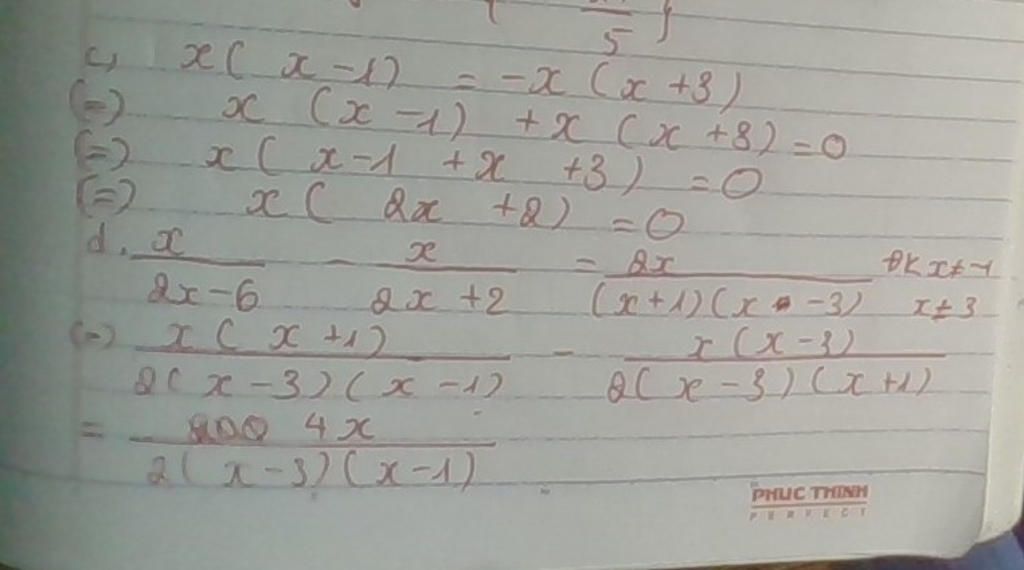 5 }
c, x( x -1) = -x (x +3)
(=) x (x -1) +x (x +3) =0
(=) x( x-1 +x +3) =0
(=) x( 2x +2) =0
d. x/(2x-6) - x/(2x+2) = 2x/((x+1)(x-3)) ĐK x≠-1
x≠3
(=) x(x+1)/(2(x-3)(x-1)) - x(x-3)/(2(x-3)(x+1))
= 4x/(2(x-3)(x-1))
PHUC THINH
PERFECT